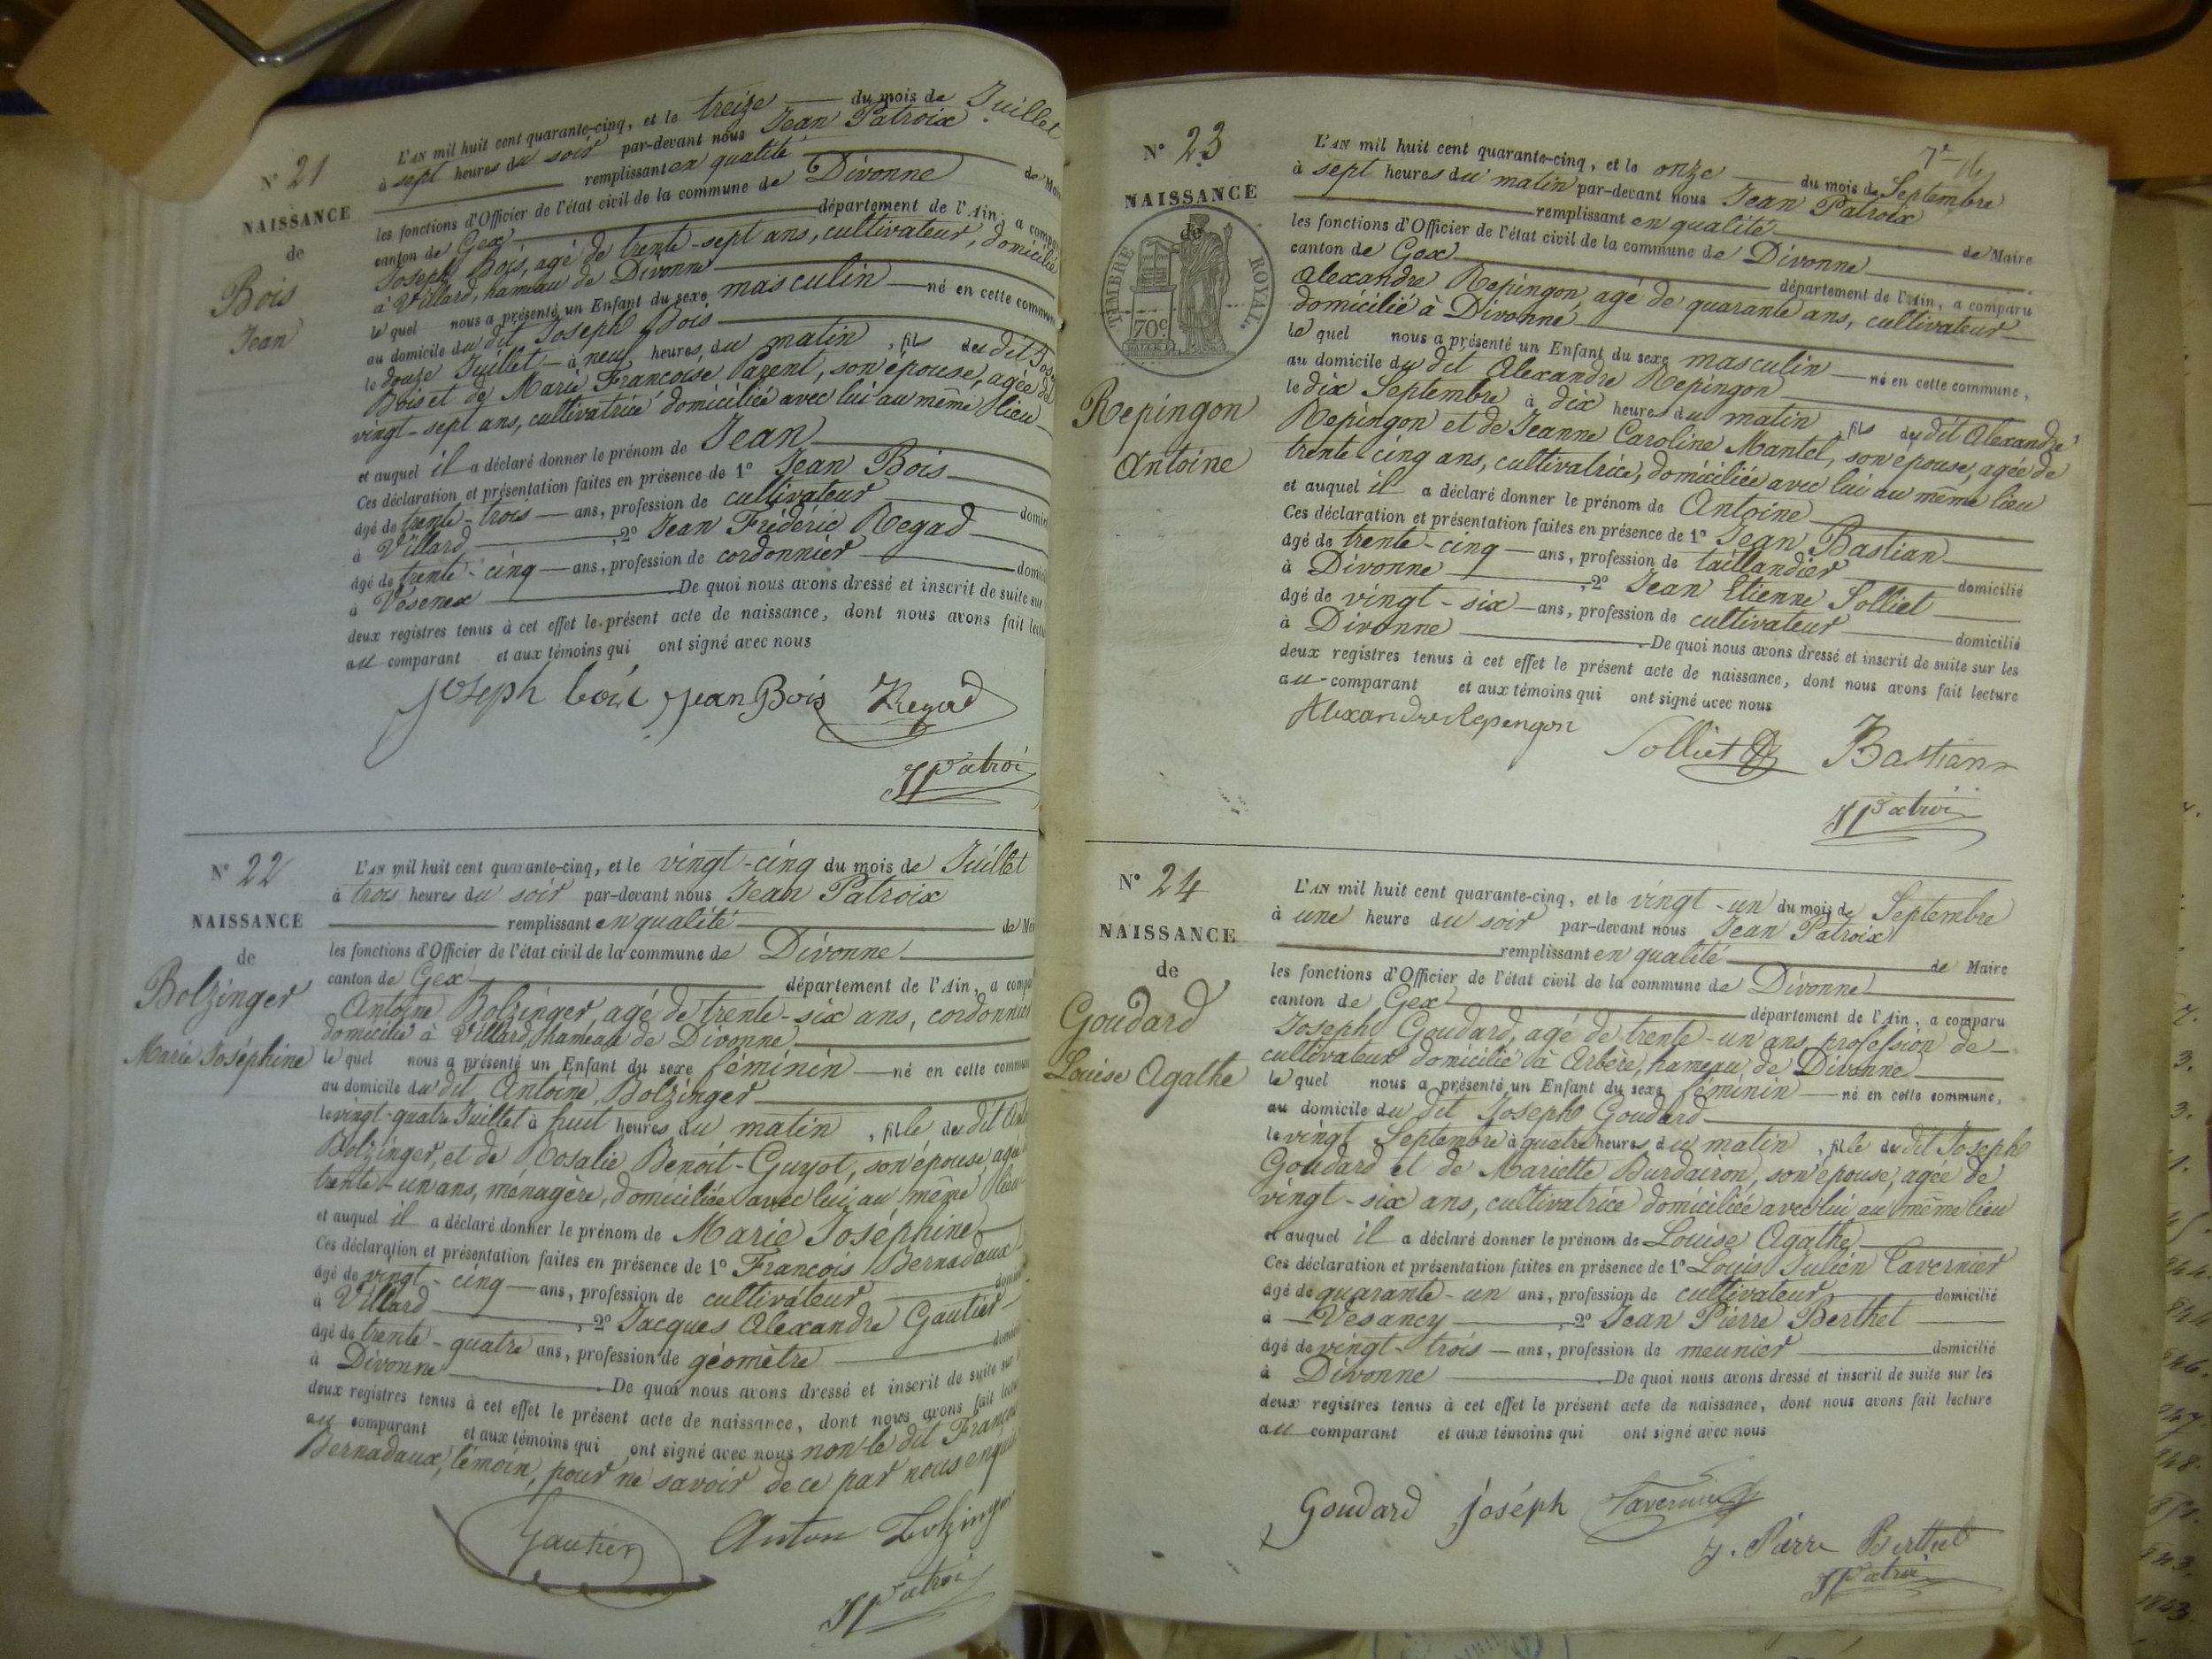 N° 21
NAISSANCE
de
Bois
Jean
L'AN mil huit cent quarante-cinq, et le treize du mois de Juillet
à sept heures du soir par-devant nous Jean Patroix
remplissant en qualité de
les fonctions d'Officier de l'état civil de la commune de Divonne
canton de Gex département de l'Ain, a
Joseph Bois, agé de trente-sept ans, cultivateur, domicilié
à Villard, hameau de Divonne
le quel nous a présenté un Enfant du sexe masculin né en cette
au domicile du dit Joseph Bois
le douze Juillet à neuf heures du matin, fils du dit
Bois et de Marie Françoise Parent, son épouse, agée de
vingt-sept ans, cultivatrice domiciliée avec lui au même lieu
et auquel il a déclaré donner le prénom de Jean
Ces déclaration et présentation faites en présence de 1° Jean Bois
âgé de trente-trois ans, profession de cultivateur
à Villard, 2° Jean Frédéric Regad
âgé de trente-cinq ans, profession de cordonnier
à Vésenex De quoi nous avons dressé et inscrit de suite sur
deux registres tenus à cet effet le présent acte de naissance, dont nous avons fait
au comparant et aux témoins qui ont signé avec nous
Joseph bois Jean Bois Regad
JPatroi
N° 22
NAISSANCE
de
Bolzinger
Marie Joséphine
L'AN mil huit cent quarante-cinq, et le vingt-cinq du mois de Juillet
à trois heures du soir par-devant nous Jean Patroix
remplissant en qualité de
les fonctions d'Officier de l'état civil de la commune de Divonne
canton de Gex département de l'Ain, a
Antoine Bolzinger, agé de trente-six ans, cordonnier
domicilié à Villard, hameau de Divonne
le quel nous a présenté un Enfant du sexe féminin né en cette
au domicile du dit Antoine Bolzinger
le vingt-quatre Juillet à huit heures du matin, fille du dit
Bolzinger, et de Rosalie Benoit-Guyot, son épouse, agée
trente-un ans, ménagère, domiciliée avec lui au même lieu
et auquel il a déclaré donner le prénom de Marie Joséphine
Ces déclaration et présentation faites en présence de 1° François Bernadaux
âgé de vingt-cinq ans, profession de cultivateur
à Villard, 2° Jacques Alexandre Gautier
âgé de trente-quatre ans, profession de géomètre
à Divonne De quoi nous avons dressé et inscrit de suite sur
deux registres tenus à cet effet le présent acte de naissance, dont nous avons fait
au comparant et aux témoins qui ont signé avec nous non le dit François
Bernadaux, témoin, pour ne savoir de ce par nous enquis
Gautier Anton Bolzinger
JPatroi
7e
N° 23
NAISSANCE
de
TIMBRE ROYAL
70c
Repingon
Antoine
L'AN mil huit cent quarante-cinq, et le onze du mois de Septembre
à sept heures du matin par-devant nous Jean Patroix
remplissant en qualité de Maire
les fonctions d'Officier de l'état civil de la commune de Divonne
canton de Gex département de l'Ain, a comparu
Alexandre Repingon, agé de quarante ans, cultivateur
domicilié à Divonne
le quel nous a présenté un Enfant du sexe masculin né en cette commune,
au domicile du dit Alexandre Repingon
le dix Septembre à dix heures du matin, fils du dit Alexandre
Repingon et de Jeanne Caroline Mantel, son épouse, agée de
trente-cinq ans, cultivatrice, domiciliée avec lui au même lieu
et auquel il a déclaré donner le prénom de Antoine
Ces déclaration et présentation faites en présence de 1° Jean Bastian
âgé de trente-cinq ans, profession de taillandier domicilié
à Divonne, 2° Jean Etienne Solliet
âgé de vingt-six ans, profession de cultivateur domicilié
à Divonne De quoi nous avons dressé et inscrit de suite sur les
deux registres tenus à cet effet le présent acte de naissance, dont nous avons fait lecture
au comparant et aux témoins qui ont signé avec nous
Alexandre Repengon
Solliet Bastian
JPatroi
N° 24
NAISSANCE
de
Goudard
Louise Agathe
L'AN mil huit cent quarante-cinq, et le vingt-un du mois de Septembre
à une heure du soir par-devant nous Jean Patroix
remplissant en qualité de Maire
les fonctions d'Officier de l'état civil de la commune de Divonne
canton de Gex département de l'Ain, a comparu
Joseph Goudard, agé de trente-un ans, profession de
cultivateur domicilié à Arbère, hameau de Divonne
le quel nous a présenté un Enfant du sexe féminin né en cette commune,
au domicile du dit Joseph Goudard
le vingt Septembre à quatre heures du matin, fille du dit Joseph
Goudard et de Mariette Burdairon, son épouse, agée de
vingt-six ans, cultivatrice domiciliée avec lui au même lieu
et auquel il a déclaré donner le prénom de Louise Agathe
Ces déclaration et présentation faites en présence de 1° Louis Julien Tavernier
âgé de quarante-un ans, profession de cultivateur domicilié
à Vesancy, 2° Jean Pierre Berthet
âgé de vingt-trois ans, profession de meunier domicilié
à Divonne De quoi nous avons dressé et inscrit de suite sur les
deux registres tenus à cet effet le présent acte de naissance, dont nous avons fait lecture
au comparant et aux témoins qui ont signé avec nous
Goudard joséph Tavernier
J. Pierre Berthet
JPatroi